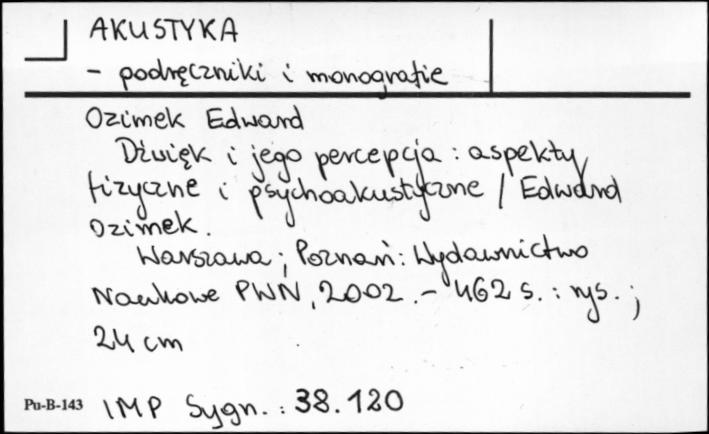 AKUSTYKA
- podręczniki i monografie
Ozimek Edward
Dźwięk i jego percepcja : aspekty
fizyczne i psychoakustyczne / Edward
Ozimek.
Warszawa ; Poznań : Wydawnictwo
Naukowe PWN, 2002. - 462 s. : rys. ;
24 cm
Pu-B-143 IMP Sygn. : 38.120